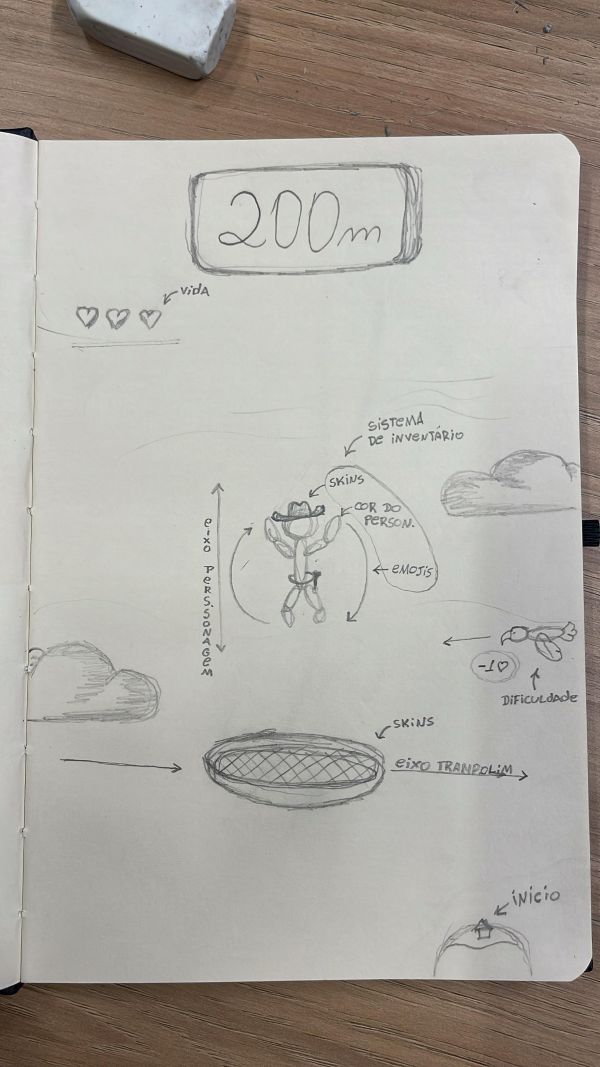 200m
vida
SISTEMA
DE INVENTÁRIO
SKINS
COR DO
PERSON.
EMOJIS
eixo PERSSONAGEM
-1♡
DIFICULDADE
SKINS
eixo TRAMPOLIM
INICIO